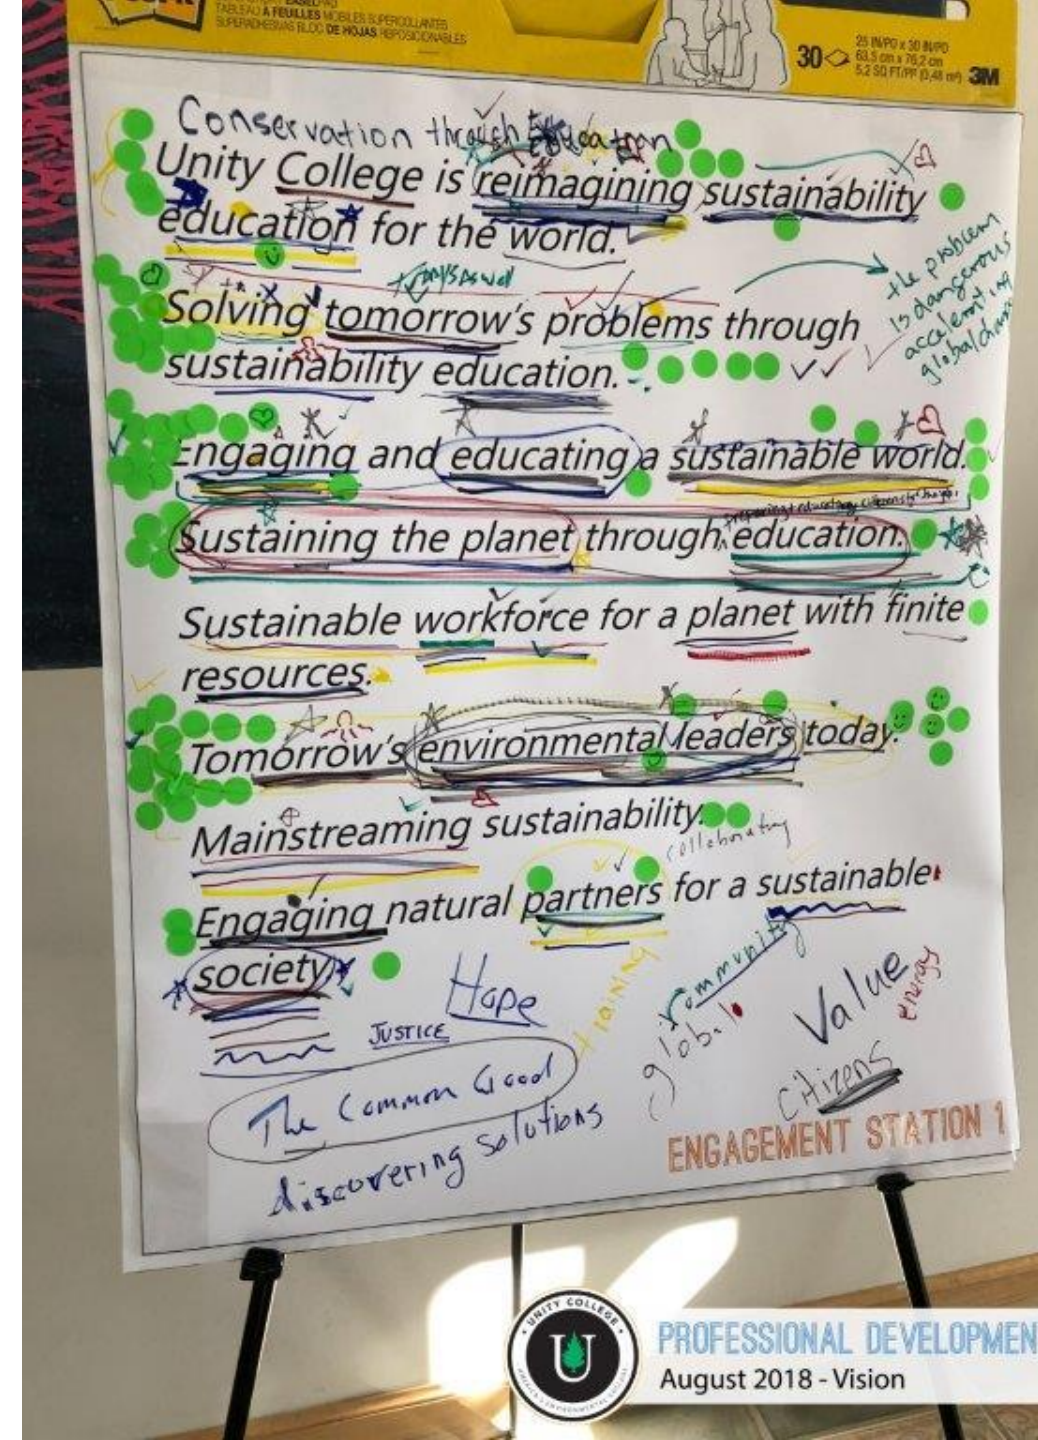 TABLEAU A FEUILLES MOBILES SUPERCOLLANTES
SUPERADHESIVAS BLOC DE HOJAS REPOSICIONABLES
30
25 IN/PO x 30 IN/PO
63,5 cm x 76,2 cm
5.2 SQ FT/PP (0,48 m²)
3M
Conservation through Education
Unity College is reimagining sustainability
education for the world.
the problem
is dangerous
accelerating
global
Solving tomorrow's problems through
sustainability education.
Engaging and educating a sustainable world.
Sustaining the planet through education.
Sustainable workforce for a planet with finite
resources.
Tomorrow's environmental leaders today.
Mainstreaming sustainability.
collaborating
Engaging natural partners for a sustainable
society
Hope
JUSTICE
training
community
global
Value
energy
Citizens
The Common Good
discovering solutions
ENGAGEMENT STATION 1
UNITY COLLEGE
U
AMERICA'S ENVIRONMENTAL COLLEGE
PROFESSIONAL DEVELOPMEN
August 2018 - Vision